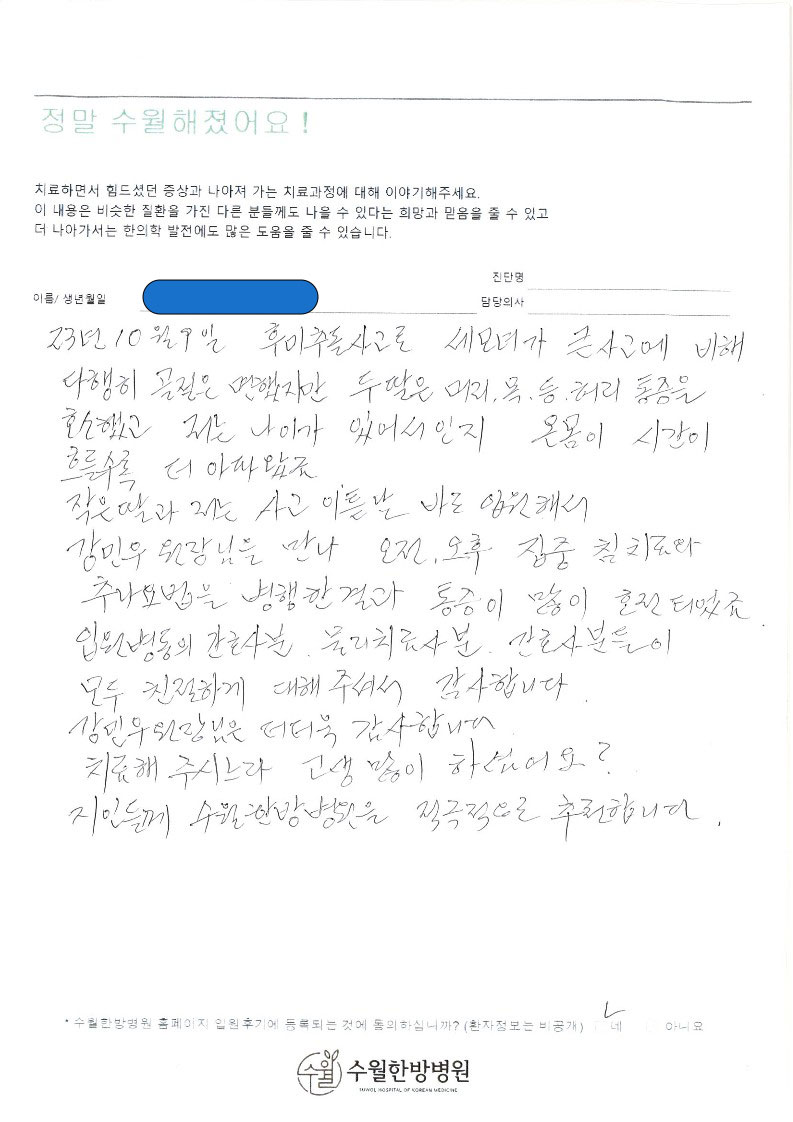 정말 수월해졌어요!
치료하면서 힘드셨던 증상과 나아져 가는 치료과정에 대해 이야기해주세요.
이 내용은 비슷한 질환을 가진 다른 분들께도 나을 수 있다는 희망과 믿음을 줄 수 있고
더 나아가서는 한의학 발전에도 많은 도움을 줄 수 있습니다.
진단명
이름/ 생년월일
담당의사
23년 10월 9일 후미추돌사고로 세모녀가 큰사고에 비해
다행히 골절은 면했지만 두딸은 머리.목.등.허리 통증을
호소했고 저는 나이가 있어서인지 온몸이 시간이
흐를수록 더 아파왔죠
작은딸과 저는 사고 이튿날 바로 입원해서
강민우 원장님을 만나 오전.오후 집중 침치료와
추나요법을 병행한결과 통증이 많이 호전되었죠.
입원병동의 간호사분. 물리치료사분. 간호사분들이
모두 친절하게 대해주셔서 감사합니다.
강민우원장님은 더더욱 감사합니다.
치료해 주시느라 고생 많이 하셨어요?
지인들께 수월한방병원을 적극적으로 추천합니다.
* 수월한방병원 홈페이지 입원후기에 등록되는 것에 동의하십니까? (환자정보는 비공개) 네 아니요
수월 수월한방병원
SUWOL HOSPITAL OF KOREAN MEDICINE